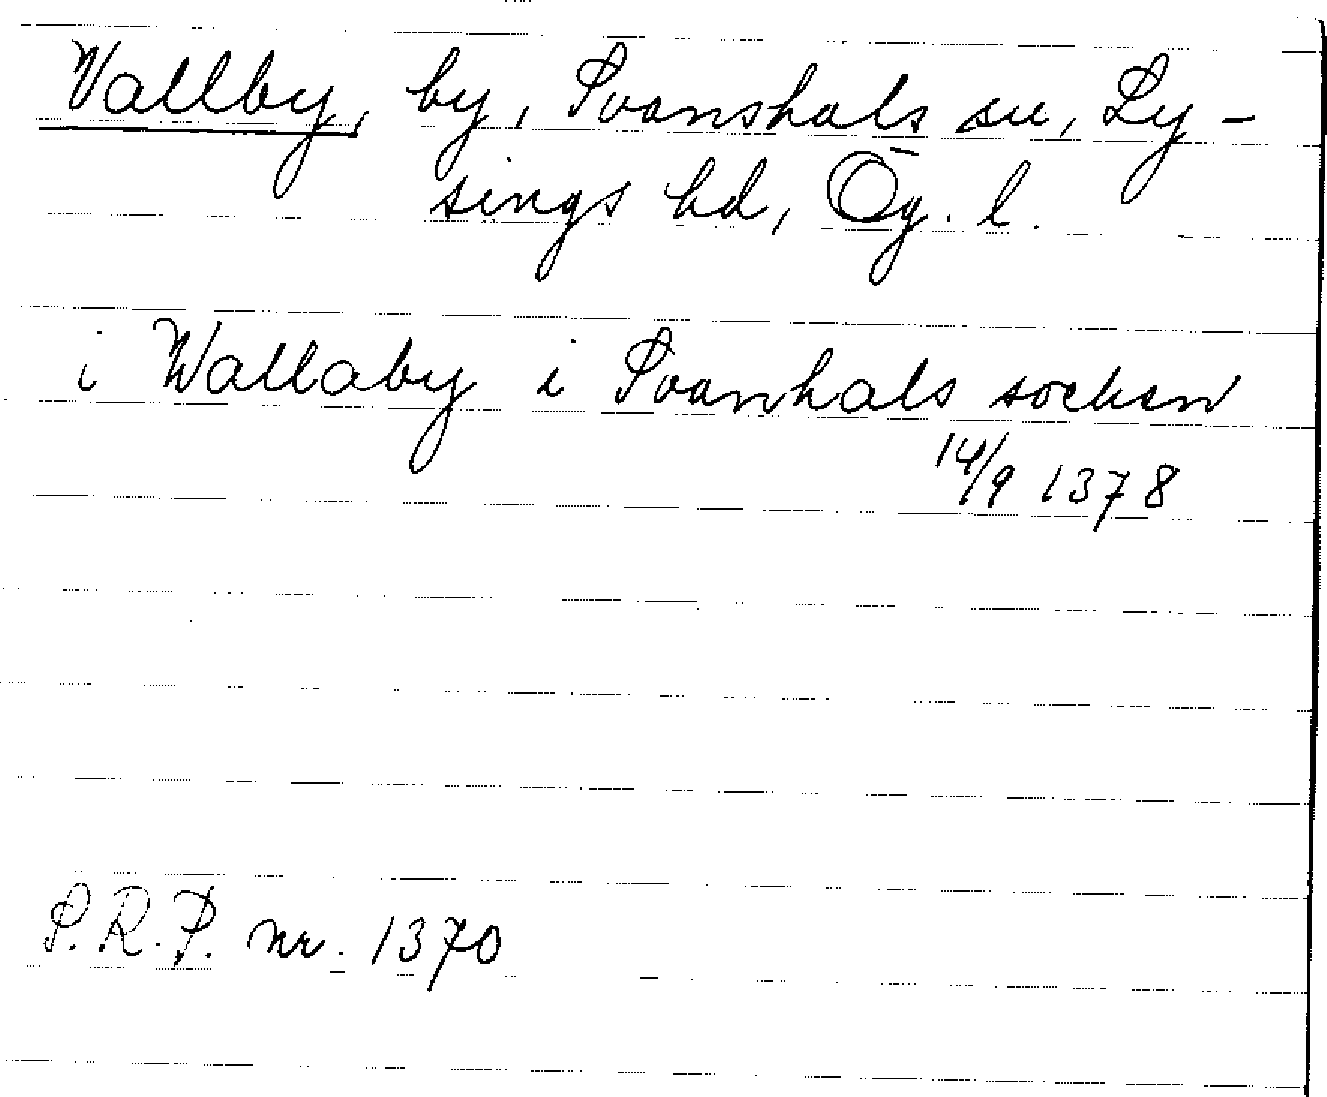 Vallby, by, Svanshals sn, Ly-
sings hd, Ög. l.
i Wallaby i Svanhals socken
14/9 1378
S.R.P. nr. 1370